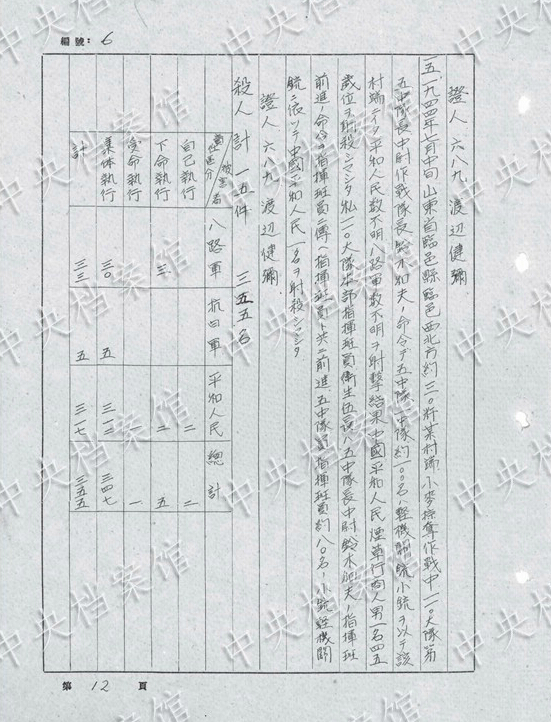 編號：6
證人 六八九 渡辺健彌
一五、一九四四年 月中旬山東省臨邑縣臨邑西北方約二〇粁某村端小麥掠奪作戰中一一〇大隊第
五中隊長中尉作戰隊長鈴木和夫ノ命令デ五中隊一中隊約一〇〇名ハ輕機關銃小銃ヲ以テ該
村端ニテ平和人民数不明八路軍数不明ヲ射擊結果中國平和人民煙草行商人男一名四五
歲位ヲ射殺シマシタ私一一〇大隊本部指揮班員衛生伍長ハ五中隊長中尉鈴木和夫ノ指揮班
前進ノ命令ヲ指揮班員ニ傳ヘ指揮班員ト共ニ前進五中隊 指揮班員約八〇名ノ小銃輕機關
銃ニ依ッテ中國平和人民一名ヲ射殺シマシタ
證人 六八九 渡辺健彌
殺人 計 一五件 三五五名
責任区分 被害者 八路軍 抗日軍 平和人民 總計
自己執行 二 二
下命執行 三 二 五
受命執行 一 一
集体執行 三〇 五 三一二 三四七
計 三三 五 三一七 三五五
第 12 頁
中央档案馆